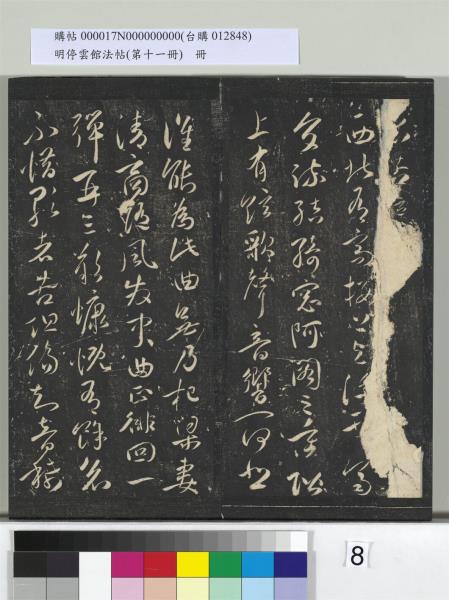 購帖 000017N000000000(台購 012848)
明停雲館法帖(第十一冊) 冊
西北有高樓上與浮雲齊
交疏結綺窗阿閣三重階
上有絃歌聲音響一何悲
誰能為此曲無乃杞梁妻
清商隨風發中曲正徘回一
彈再三歎慷慨有餘哀
不惜歌者苦但傷知音稀
8